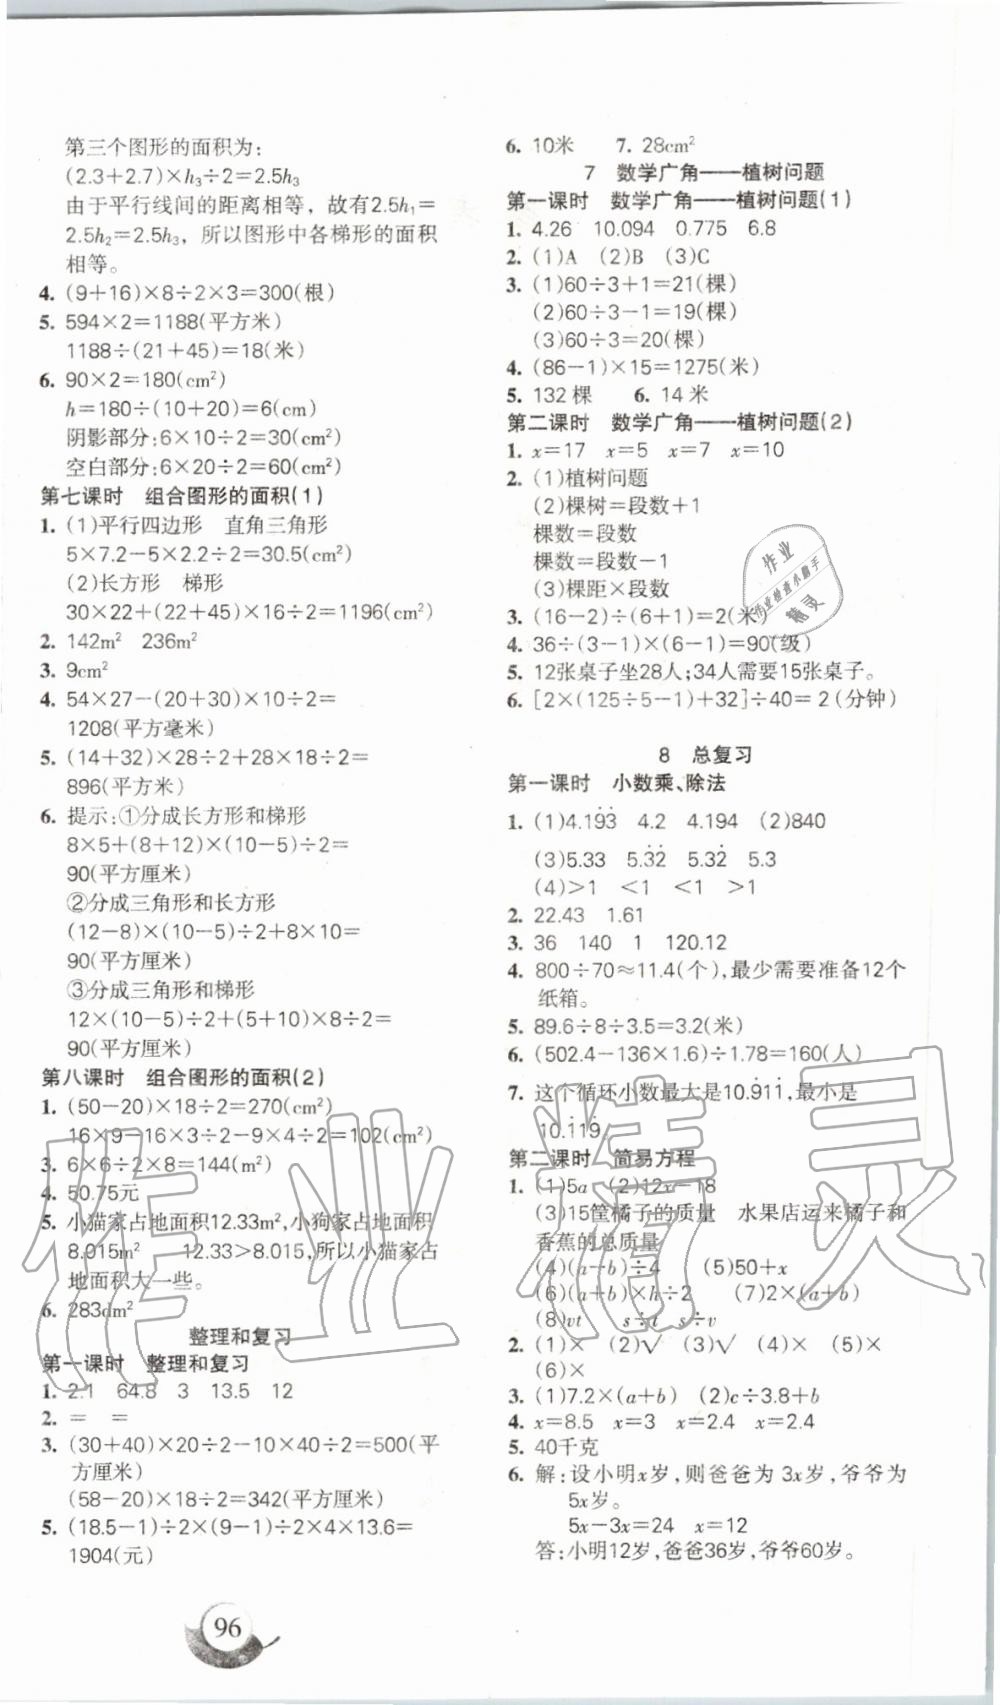 第三个图形的面积为:
(2.3+2.7)×h₃÷2=2.5h₃
由于平行线间的距离相等，故有2.5h₁=
2.5h₂=2.5h₃，所以图形中各梯形的面积
相等。
4. (9+16)×8÷2×3=300(根)
5. 594×2=1188(平方米)
1188÷(21+45)=18(米)
6. 90×2=180(cm²)
h=180÷(10+20)=6(cm)
阴影部分:6×10÷2=30(cm²)
空白部分:6×20÷2=60(cm²)
第七课时 组合图形的面积(1)
1. (1)平行四边形 直角三角形
5×7.2-5×2.2÷2=30.5(cm²)
(2)长方形 梯形
30×22+(22+45)×16÷2=1196(cm²)
2. 142m² 236m²
3. 9cm²
4. 54×27-(20+30)×10÷2=
1208(平方毫米)
5. (14+32)×28÷2+28×18÷2=
896(平方米)
6. 提示:①分成长方形和梯形
8×5+(8+12)×(10-5)÷2=
90(平方厘米)
②分成三角形和长方形
(12-8)×(10-5)÷2+8×10=
90(平方厘米)
③分成三角形和梯形
12×(10-5)÷2+(5+10)×8÷2=
90(平方厘米)
第八课时 组合图形的面积(2)
1. (50-20)×18÷2=270(cm²)
16×9-16×3÷2-9×4÷2=102(cm²)
3. 6×6÷2×8=144(m²)
4. 50.75元
5. 小猫家占地面积12.33m²,小狗家占地面积
8.015m² 12.33>8.015,所以小猫家占
地面积大一些。
6. 283dm²
整理和复习
第一课时 整理和复习
1. 2.1 64.8 3 13.5 12
2. = =
3. (30+40)×20÷2-10×40÷2=500(平
方厘米)
(58-20)×18÷2=342(平方厘米)
5. (18.5-1)÷2×(9-1)÷2×4×13.6=
1904(元)
96
6. 10米 7. 28cm²
7 数学广角——植树问题
第一课时 数学广角——植树问题(1)
1. 4.26 10.094 0.775 6.8
2. (1)A (2)B (3)C
3. (1)60÷3+1=21(棵)
(2)60÷3-1=19(棵)
(3)60÷3=20(棵)
4. (86-1)×15=1275(米)
5. 132棵 6. 14米
第二课时 数学广角——植树问题(2)
1. x=17 x=5 x=7 x=10
2. (1)植树问题
(2)棵树=段数+1
棵数=段数
棵数=段数-1
(3)棵距×段数
3. (16-2)÷(6+1)=2(米)
4. 36÷(3-1)×(6-1)=90(级)
5. 12张桌子坐28人;34人需要15张桌子。
6. [2×(125÷5-1)+32]÷40=2(分钟)
8 总复习
第一课时 小数乘、除法
1. (1)4.19̇3̇ 4.2 4.194 (2)840
(3)5.33 5.3̇2̇ 5.32̇ 5.3
(4)>1 <1 <1 >1
2. 22.43 1.61
3. 36 140 1 120.12
4. 800÷70≈11.4(个),最少需要准备12个
纸箱。
5. 89.6÷8÷3.5=3.2(米)
6. (502.4-136×1.6)÷1.78=160(人)
7. 这个循环小数最大是10.9̇11̇,最小是
10.1̇19̇
第二课时 简易方程
1. (1)5a (2)12x-18
(3)15筐橘子的质量 水果店运来橘子和
香蕉的总质量
(4)(a-b)÷4 (5)50+x
(6)(a+b)×h÷2 (7)2×(a+b)
(8)vt s÷t s÷v
2. (1)× (2)√ (3)√ (4)× (5)×
(6)×
3. (1)7.2×(a+b) (2)c÷3.8+b
4. x=8.5 x=3 x=2.4 x=2.4
5. 40千克
6. 解:设小明x岁,则爸爸为3x岁,爷爷为
5x岁。
5x-3x=24 x=12
答:小明12岁,爸爸36岁,爷爷60岁。
作业
作业检查小助手
精灵
作业精灵